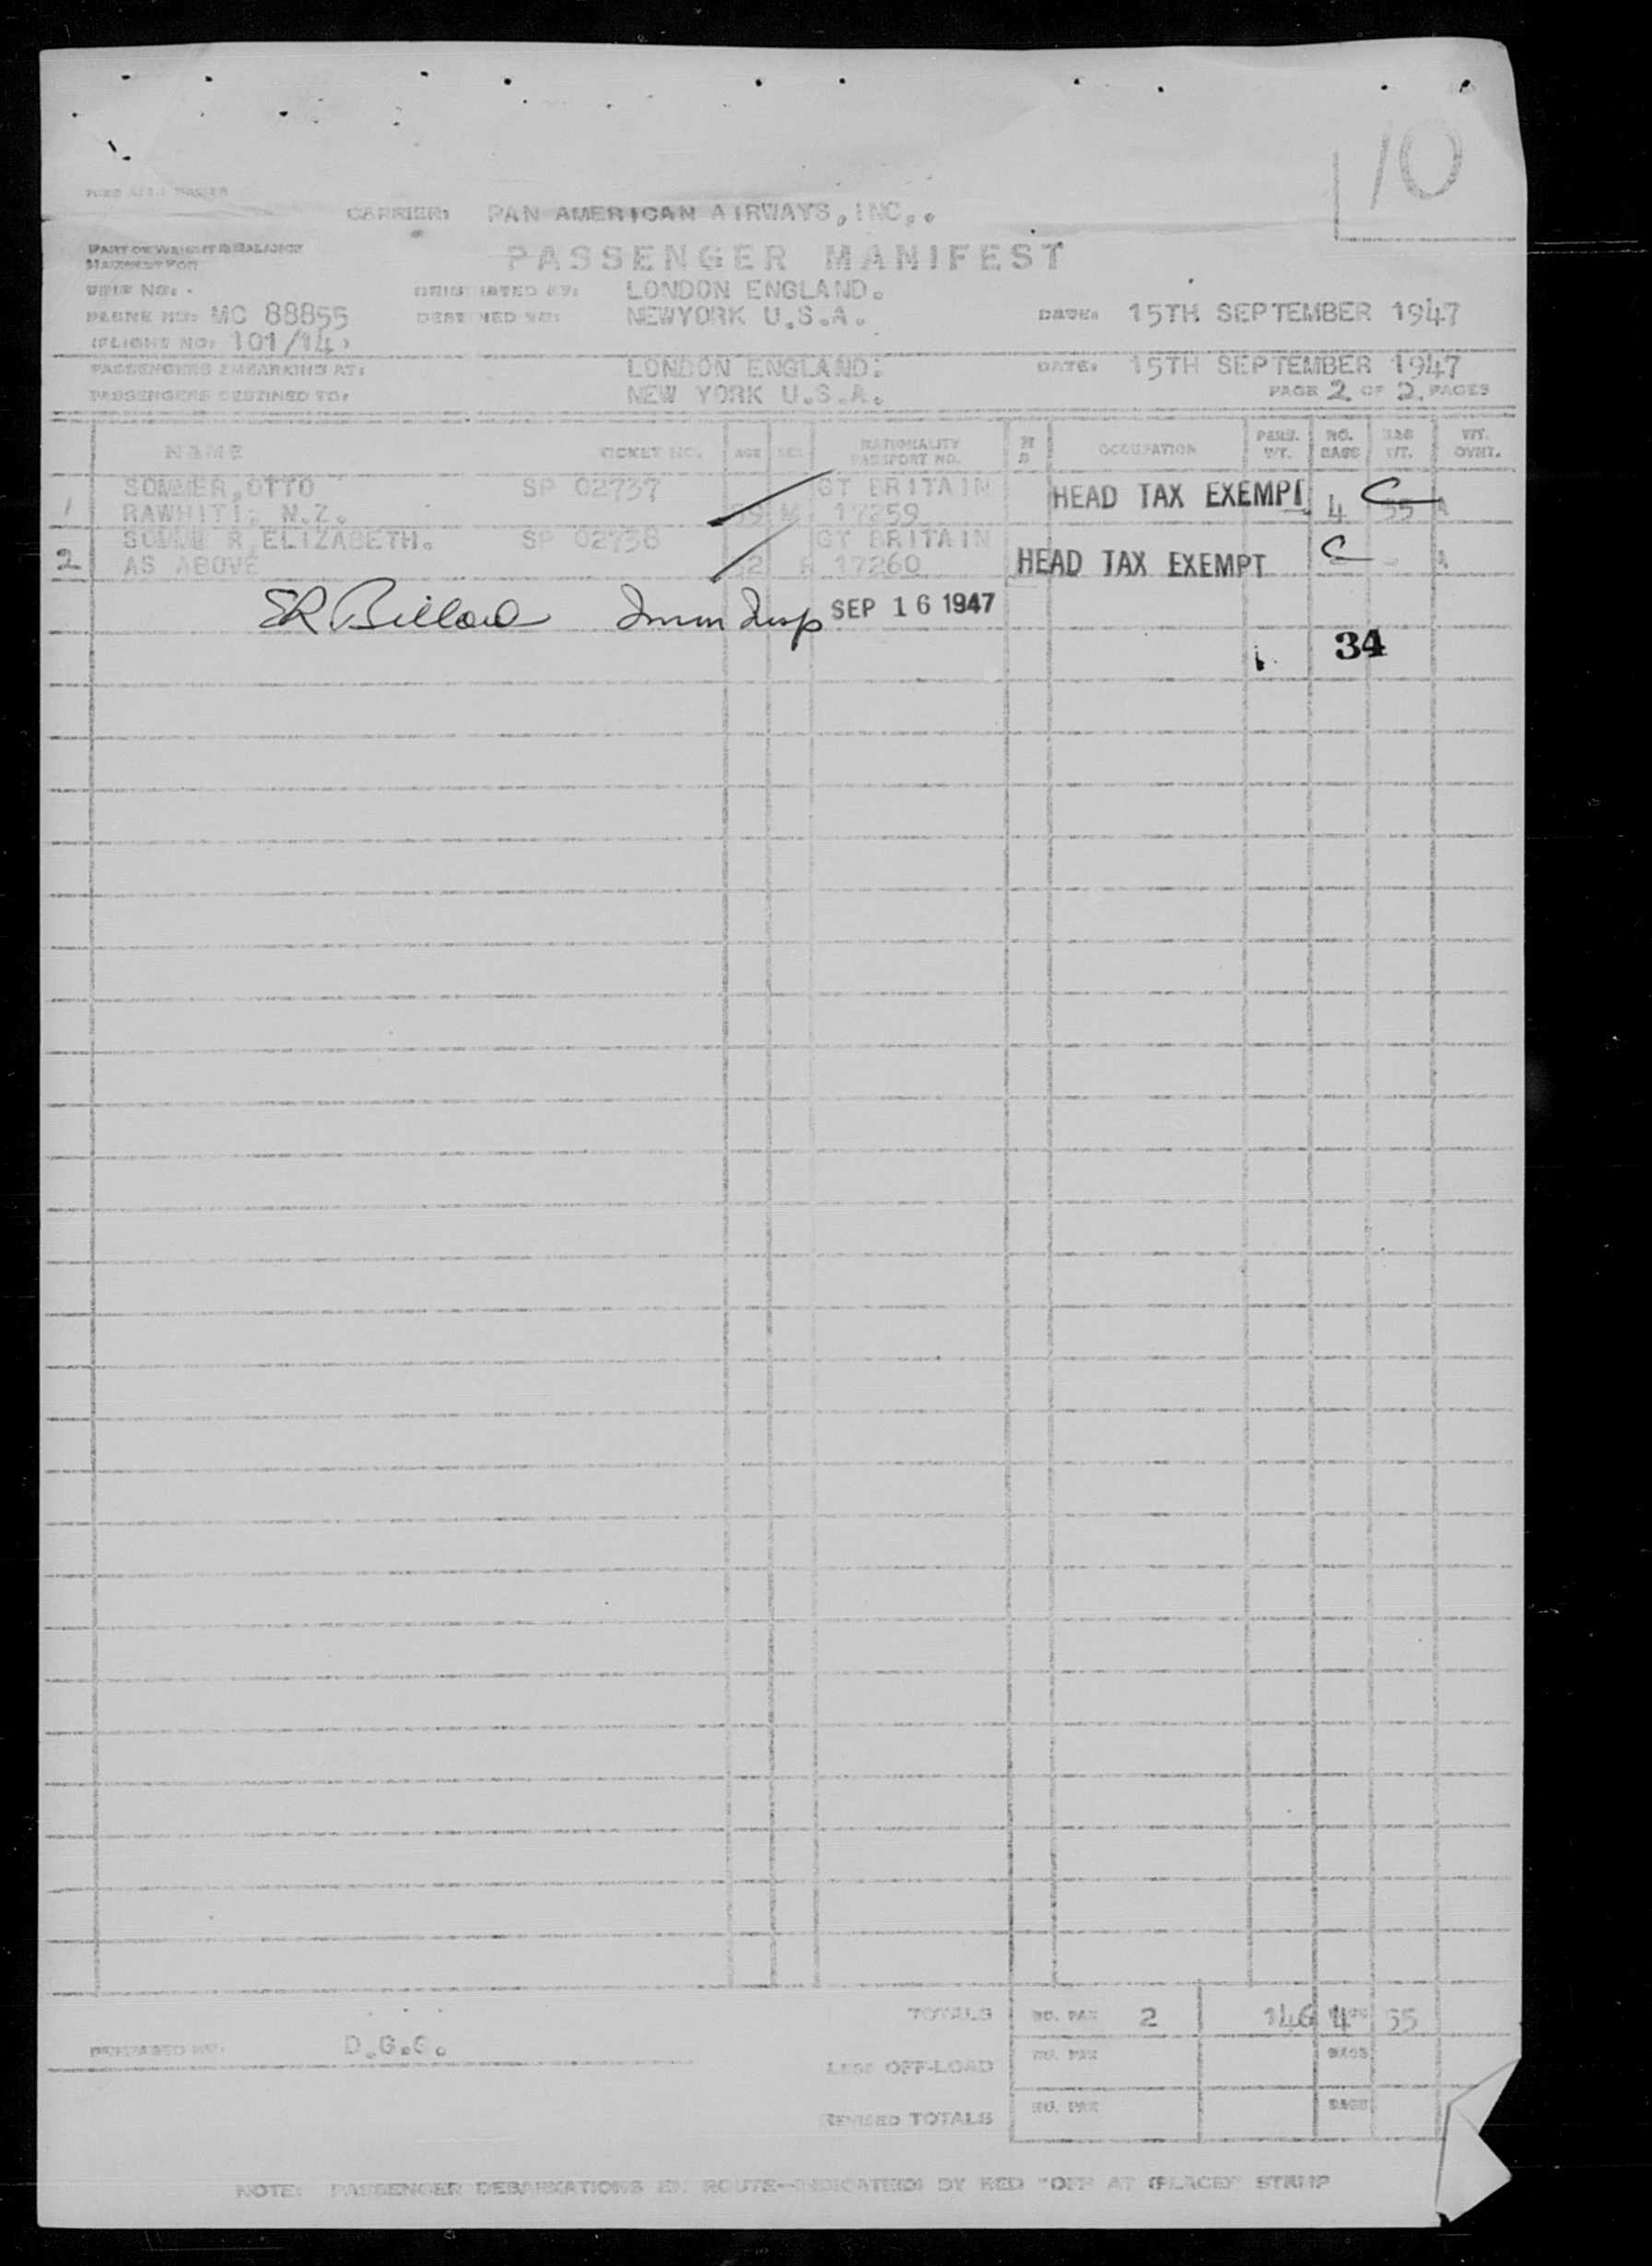 10
CARRIER: PAN AMERICAN AIRWAYS, INC..
PART OF WEIGHT & BALANCE
MANIFEST FOR
PASSENGER MANIFEST
TRIP NO: -
ORIGINATED BY: LONDON ENGLAND.
PLANE NO: NC 88855 DESTINED TO: NEWYORK U.S.A. DATE: 15TH SEPTEMBER 1947
(FLIGHT NO: 101/14)
PASSENGERS EMBARKING AT: LONDON ENGLAND: DATE: 15TH SEPTEMBER 1947
PASSENGERS DESTINED TO: NEW YORK U.S.A. PAGE 2 OF 2 PAGES
NAME TICKET NO. AGE SEX NATIONALITY PASSPORT NO. OCCUPATION PERS. WT. NO. BAGS BAG WT. WT. OVHT.
SOMMER, OTTO SP 02737 GT BRITAIN HEAD TAX EXEMPT
1 RAWHITI, N.Z. M 17259 4 55 A
SOMME R, ELIZABETH. SP 02738 GT BRITAIN
2 AS ABOVE 17260 HEAD TAX EXEMPT - A
ER Billard Imm Insp SEP 16 1947
34
TOTALS NO. PAX 2 146 4 BAGS 55
PREPARED BY: D.G.C.
LESS OFF-LOAD NO. PAX BAGS
REVISED TOTALS NO. PAX BAGS
NOTE: PASSENGER DEBARKATIONS EN ROUTE--INDICATED BY RED "OFF AT (PLACE)" STAMP